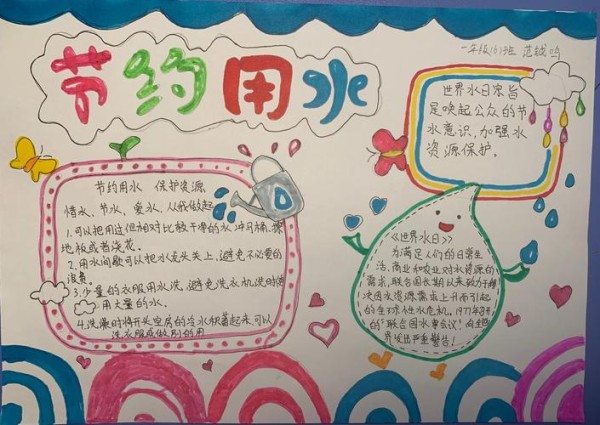 节约用水
一年级
世界水日宗旨
是唤起公众的节
水意识,加强水
资源保护。
节约用水 保护资源
惜水、节水、爱水,从我做起
1.可以把用过但相对比较干净的水冲马桶、擦
地板或者浇花。
2.用水间歇可以把水龙头关上,避免不必要的
浪费。
3.少量的衣服用水洗,避免洗衣机洗时使
用大量的水。
4.洗澡时将开头空房的冷水积蓄起来,可以
洗衣服或做别的用
《世界水日》
为满足人们的日常生
活、商业和农业对水资源的
需求,联合国长期以来致力于解
决因水资源需求上升而引起
的全球性水危机。1977年召开
的"联合国水事会议",向全世
界发出严重警告!